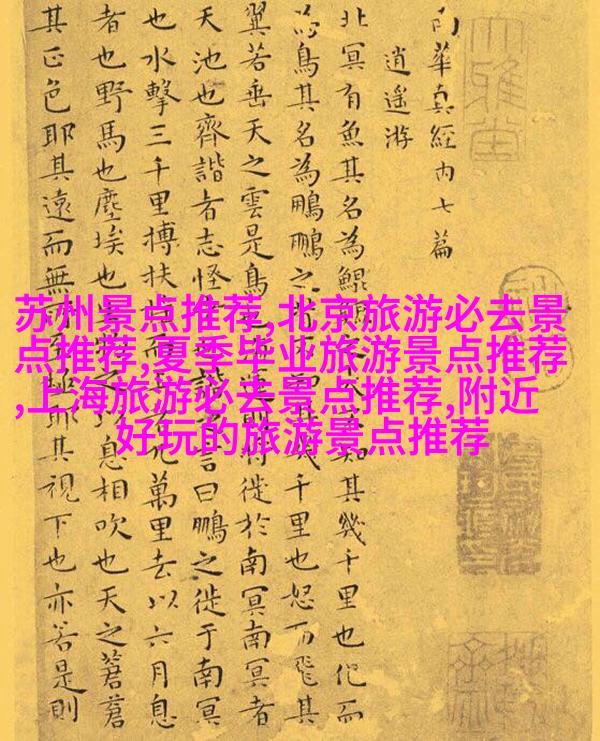 南華真經内七篇
逍遥游
北冥有魚其名為鯤鯤之大不知其幾千里也化而
為鳥其名為鵬鵬之背不知其幾千里也怒而飛其
翼若垂天之雲是鳥也海運則將徙於南冥南冥者
天池也齊諧者志怪者也諧之言曰鵬之徙于南冥
也水擊三千里搏扶摇而上者九萬里去以六月息
者也野馬也塵埃也生物之以息相吹也天之蒼蒼
其正色耶其遠而無所至極耶其視下也亦若是則
苏州景点推荐,北京旅游必去景
点推荐,夏季毕业旅游景点推荐
,上海旅游必去景点推荐,附近
好玩的旅游景点推荐